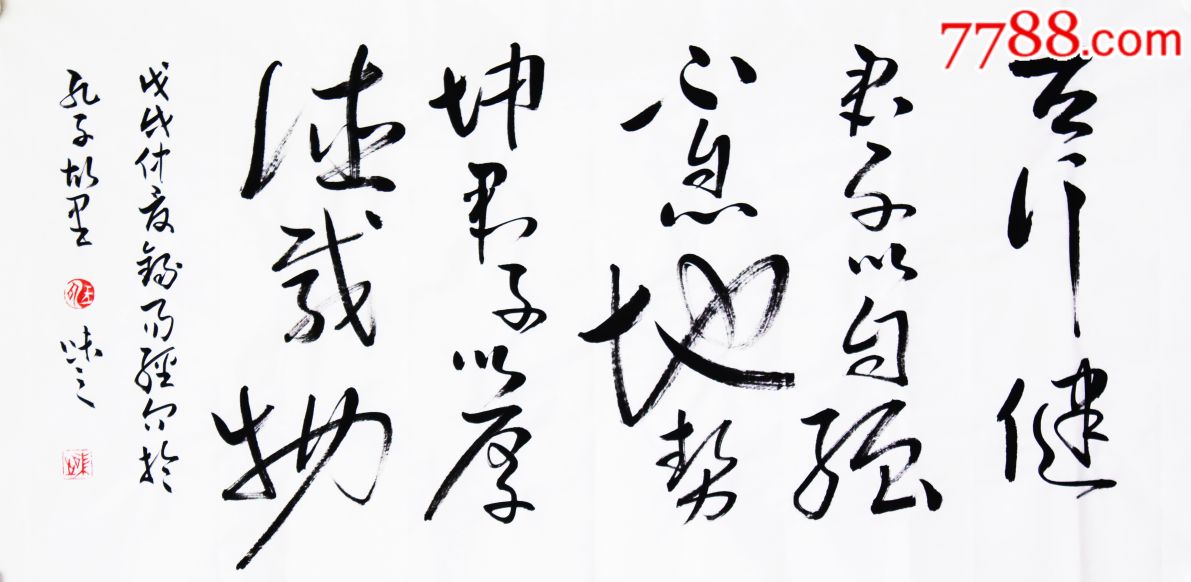 7788.com
天行健
君子以自強
不息地势
坤君子以厚
德载物
戊戌仲夏錄易經句於
孔子故里 味之